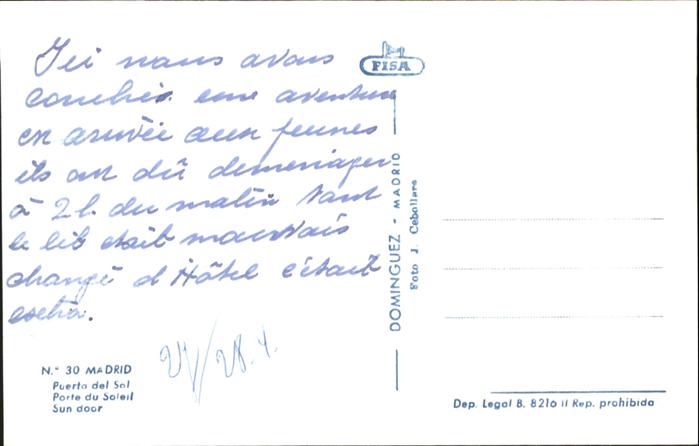 Ici nous avons
couchés. une aventure
en arrivée aux jeunes
ils ont dû demenager
à 2 h. du matin tant
le lit etait mauvais
changé d'Hôtel c'était
extra.
27/28.4.
N.° 30 MADRID
Puerta del Sol
Porte du Soleil
Sun door
FISA
DOMINGUEZ - MADRID
Foto J. Ceballos
Dep. Legal B. 8216 II Rep. prohibida